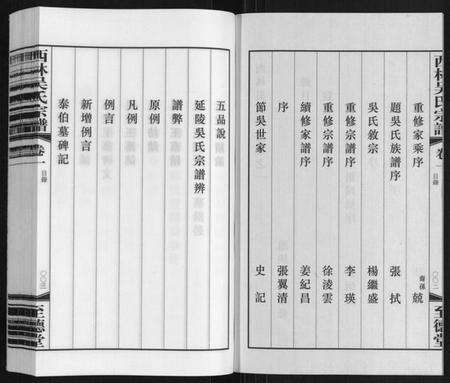 西林吳氏宗譜
卷一
目錄
〇〇二
至德堂
重修家乘序 裔孫 兢
題吳氏族譜序 張栻
吳氏敘宗 楊繼盛
重修宗譜序 李瑛
重修宗譜序 徐淩雲
續修家譜序 姜紀昌
序 張翼清
節吳世家 史記
五品說
延陵吳氏宗譜辨
譜弊
原例
凡例
例言
新增例言
泰伯墓碑記
西林吳氏宗譜
卷一
目錄
至德堂